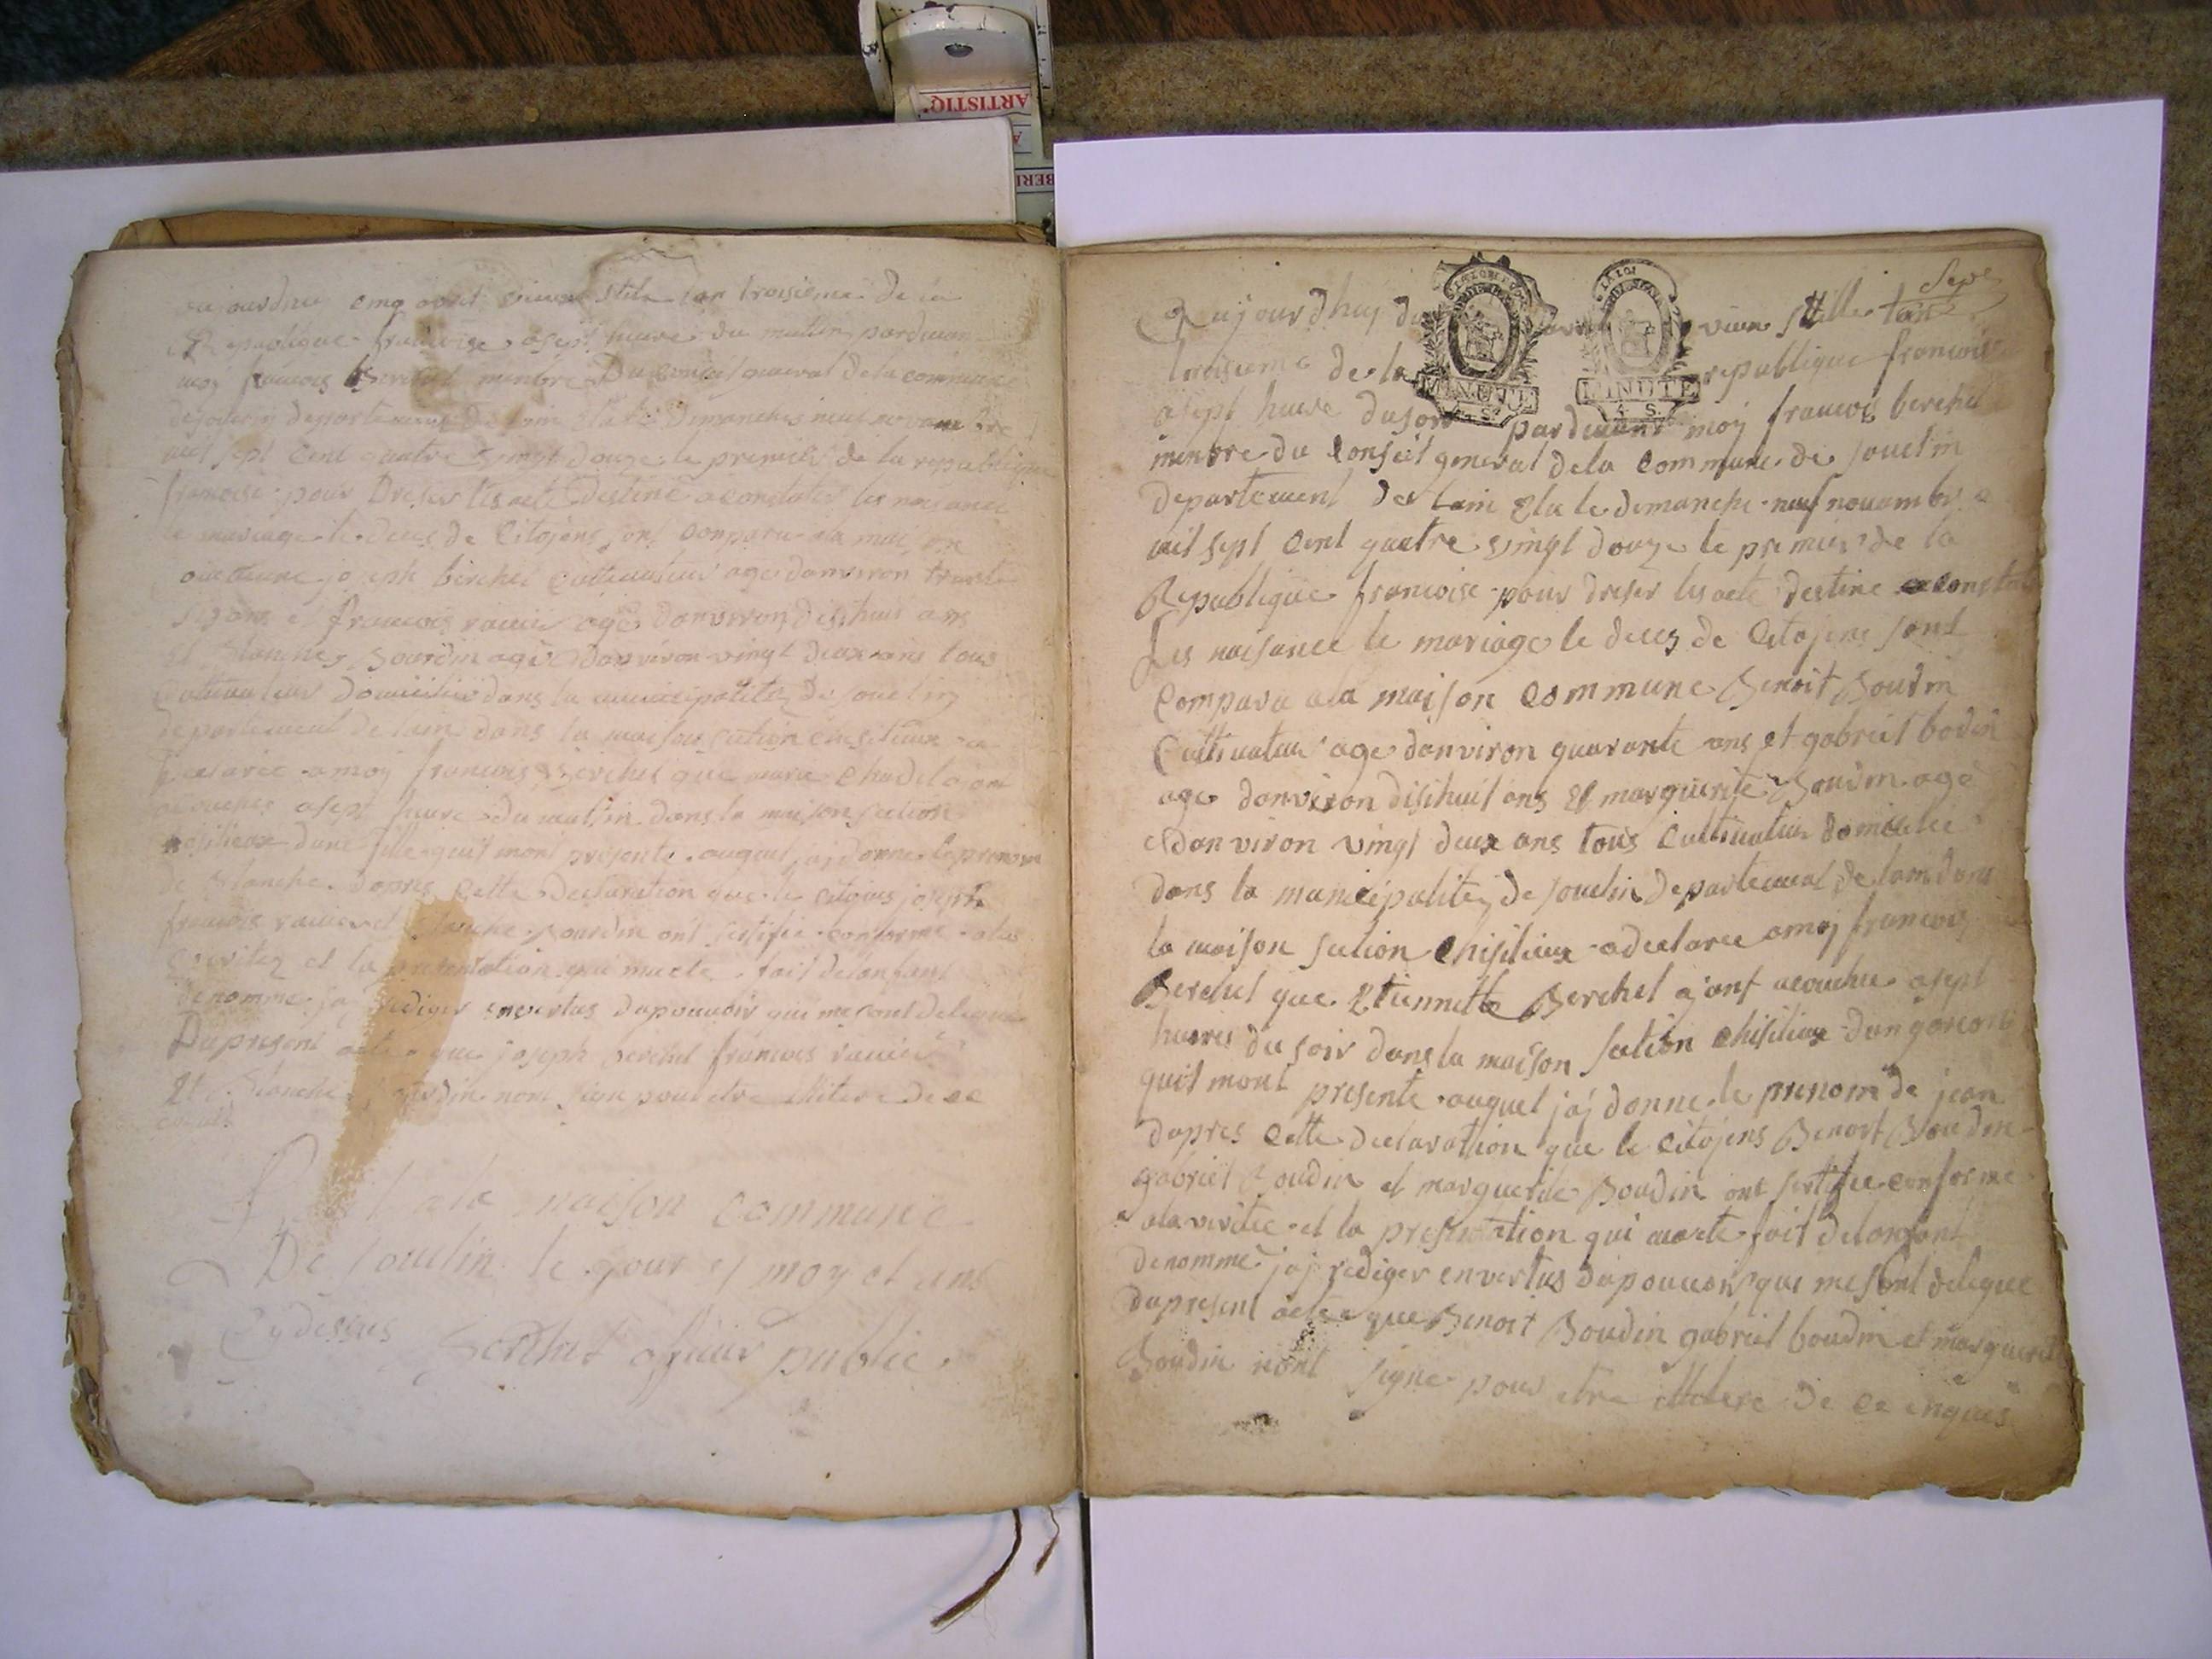 ARTISTIQ
aujourdhui cinq avril vieux stile lan troisieme de la
Republique francoise a sept heure du matin pardevant
moy francois Berchet menbre Du conseil general de la commune
departement De lain Elu le Dimanche neuf novambre
mil sept Cent quatre vingt douze le premier de la republique
francoise pour Dreser les acte Destine a constater les naisance
le mariage le deces de Citojens sont comparu a la maison
commune joseph berchet Cultivateur age danviron trante
sixans et francois age danviron disthuit ans
Et blanche Bourdin age danviron vingt deux ans tous
Cultivateur domicilie dans la municipalite de Joudin
departement de lain dans la maison section
declaree a moy francois Berchet que marie ajant
acouchee a sept heure du matin dans la maison section
dune fille quil mont présenté auquel jaj donne le prenom
de blanche dapres cette Declaration que le citojens joseph
francois et blanche Bourdin ont sertifie conforme ala
veritez et la presentation qui macte fait delanfant
denomme jaj rediger envertus dupouvoir qui me sont delegue
Dupresent acte que joseph berchet francois
Et blanche Bourdin nont signe pour etre illitere de ce
enquis
Fait ala maison commune
De Joudin le jour et moy et ans
Cy dessus Berthet officier public
Sept
Aujourdhuj du avril vieux stille lan
troisieme de la republique francoise
MINUTE MINUTE
4. S. 4. S.
asept heure dusoir pardevant moy francois berchet
menbre du Conseil general dela Commune de Joudin
departement de lain Elu le dimanche neuf novambre
mil sept Cent quatre vingt douze le premier de la
Republique francoise pour dreser les acte destine a constater
Les naisance le mariage le deces de Citojens sont
Comparu ala maison Commune Benoit Boudin
Cultivateur age danviron quarante ans et gabriel bodin
age danviron disthuit ans Et marguerite Boudin agé
danviron vingt deux ans tous Cultivateur domicilie
dans la municipalitez de Joudin departement de lain dans
la maison section Chisilieux a declaree amoj francois
Berchet que Etiennette Berchet ajant acouchee asept
heures du soir dans la maison section Chisilieux dun garcon
quil mont presente auquel jaj donne le prenom de jean
dapres Cette declaration que le Citojens Benoit Boudin
gabriel Boudin et marguerite Boudin ont sertifiee conforme
ala veritee et la presentation qui macte fait delanfant
denommé jaj rediger envertus dupouvoir que me sont delegue
dupresent acte que Benoit Boudin gabriel boudin et marguerite
Boudin nont signe pour etre illitere de ce enquis